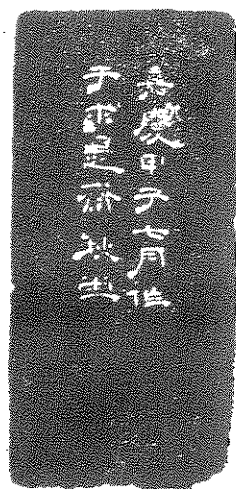 嘉慶甲子七月作
于求是齋秋堂